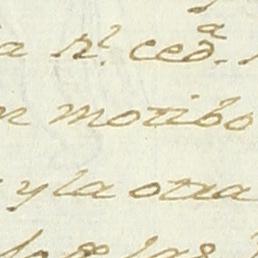 a rl. ceda.
n motibo
y la otra